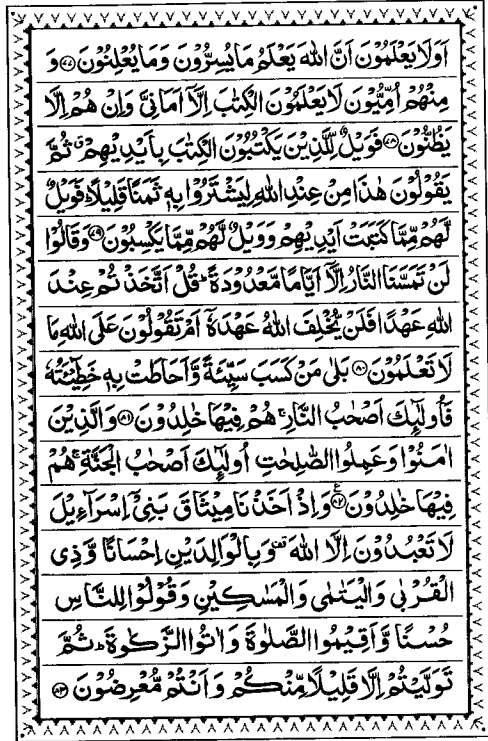 اَوَلَا يَعْلَمُوْنَ اَنَّ اللّٰهَ يَعْلَمُ مَا يُسِرُّوْنَ وَمَا يُعْلِنُوْنَ ﴿۷۷﴾ وَ
مِنْهُمْ اُمِّيُّوْنَ لَا يَعْلَمُوْنَ الْكِتٰبَ اِلَّاۤ اَمَانِيَّ وَاِنْ هُمْ اِلَّا
يَظُنُّوْنَ ﴿۷۸﴾ فَوَيْلٌ لِّلَّذِيْنَ يَكْتُبُوْنَ الْكِتٰبَ بِاَيْدِيْهِمْ ۗ ثُمَّ
يَقُوْلُوْنَ هٰذَا مِنْ عِنْدِ اللّٰهِ لِيَشْتَرُوْا بِهٖ ثَمَنًا قَلِيْلًا ؕ فَوَيْلٌ
لَّهُمْ مِّمَّا كَتَبَتْ اَيْدِيْهِمْ وَوَيْلٌ لَّهُمْ مِّمَّا يَكْسِبُوْنَ ﴿۷۹﴾ وَقَالُوْا
لَنْ تَمَسَّنَا النَّارُ اِلَّاۤ اَيَّامًا مَّعْدُوْدَةً ؕ قُلْ اَتَّخَذْتُمْ عِنْدَ
اللّٰهِ عَهْدًا فَلَنْ يُّخْلِفَ اللّٰهُ عَهْدَهٗۤ اَمْ تَقُوْلُوْنَ عَلَى اللّٰهِ مَا
لَا تَعْلَمُوْنَ ﴿۸۰﴾ بَلٰى مَنْ كَسَبَ سَيِّئَةً وَّاَحَاطَتْ بِهٖ خَطِيْٓـَٔتُهٗ
فَاُولٰٓئِكَ اَصْحٰبُ النَّارِ ۚ هُمْ فِيْهَا خٰلِدُوْنَ ﴿۸۱﴾ وَالَّذِيْنَ
اٰمَنُوْا وَعَمِلُوا الصّٰلِحٰتِ اُولٰٓئِكَ اَصْحٰبُ الْجَنَّةِ ۚ هُمْ
فِيْهَا خٰلِدُوْنَ ﴿۸۲﴾ۧ وَاِذْ اَخَذْنَا مِيْثَاقَ بَنِيْۤ اِسْرَآءِيْلَ
لَا تَعْبُدُوْنَ اِلَّا اللّٰهَ ۟ وَبِالْوَالِدَيْنِ اِحْسَانًا وَّذِي
الْقُرْبٰى وَالْيَتٰمٰى وَالْمَسٰكِيْنِ وَقُوْلُوْا لِلنَّاسِ
حُسْنًا وَّاَقِيْمُوا الصَّلٰوةَ وَاٰتُوا الزَّكٰوةَ ؕ ثُمَّ
تَوَلَّيْتُمْ اِلَّا قَلِيْلًا مِّنْكُمْ وَاَنْتُمْ مُّعْرِضُوْنَ ﴿۸۳﴾